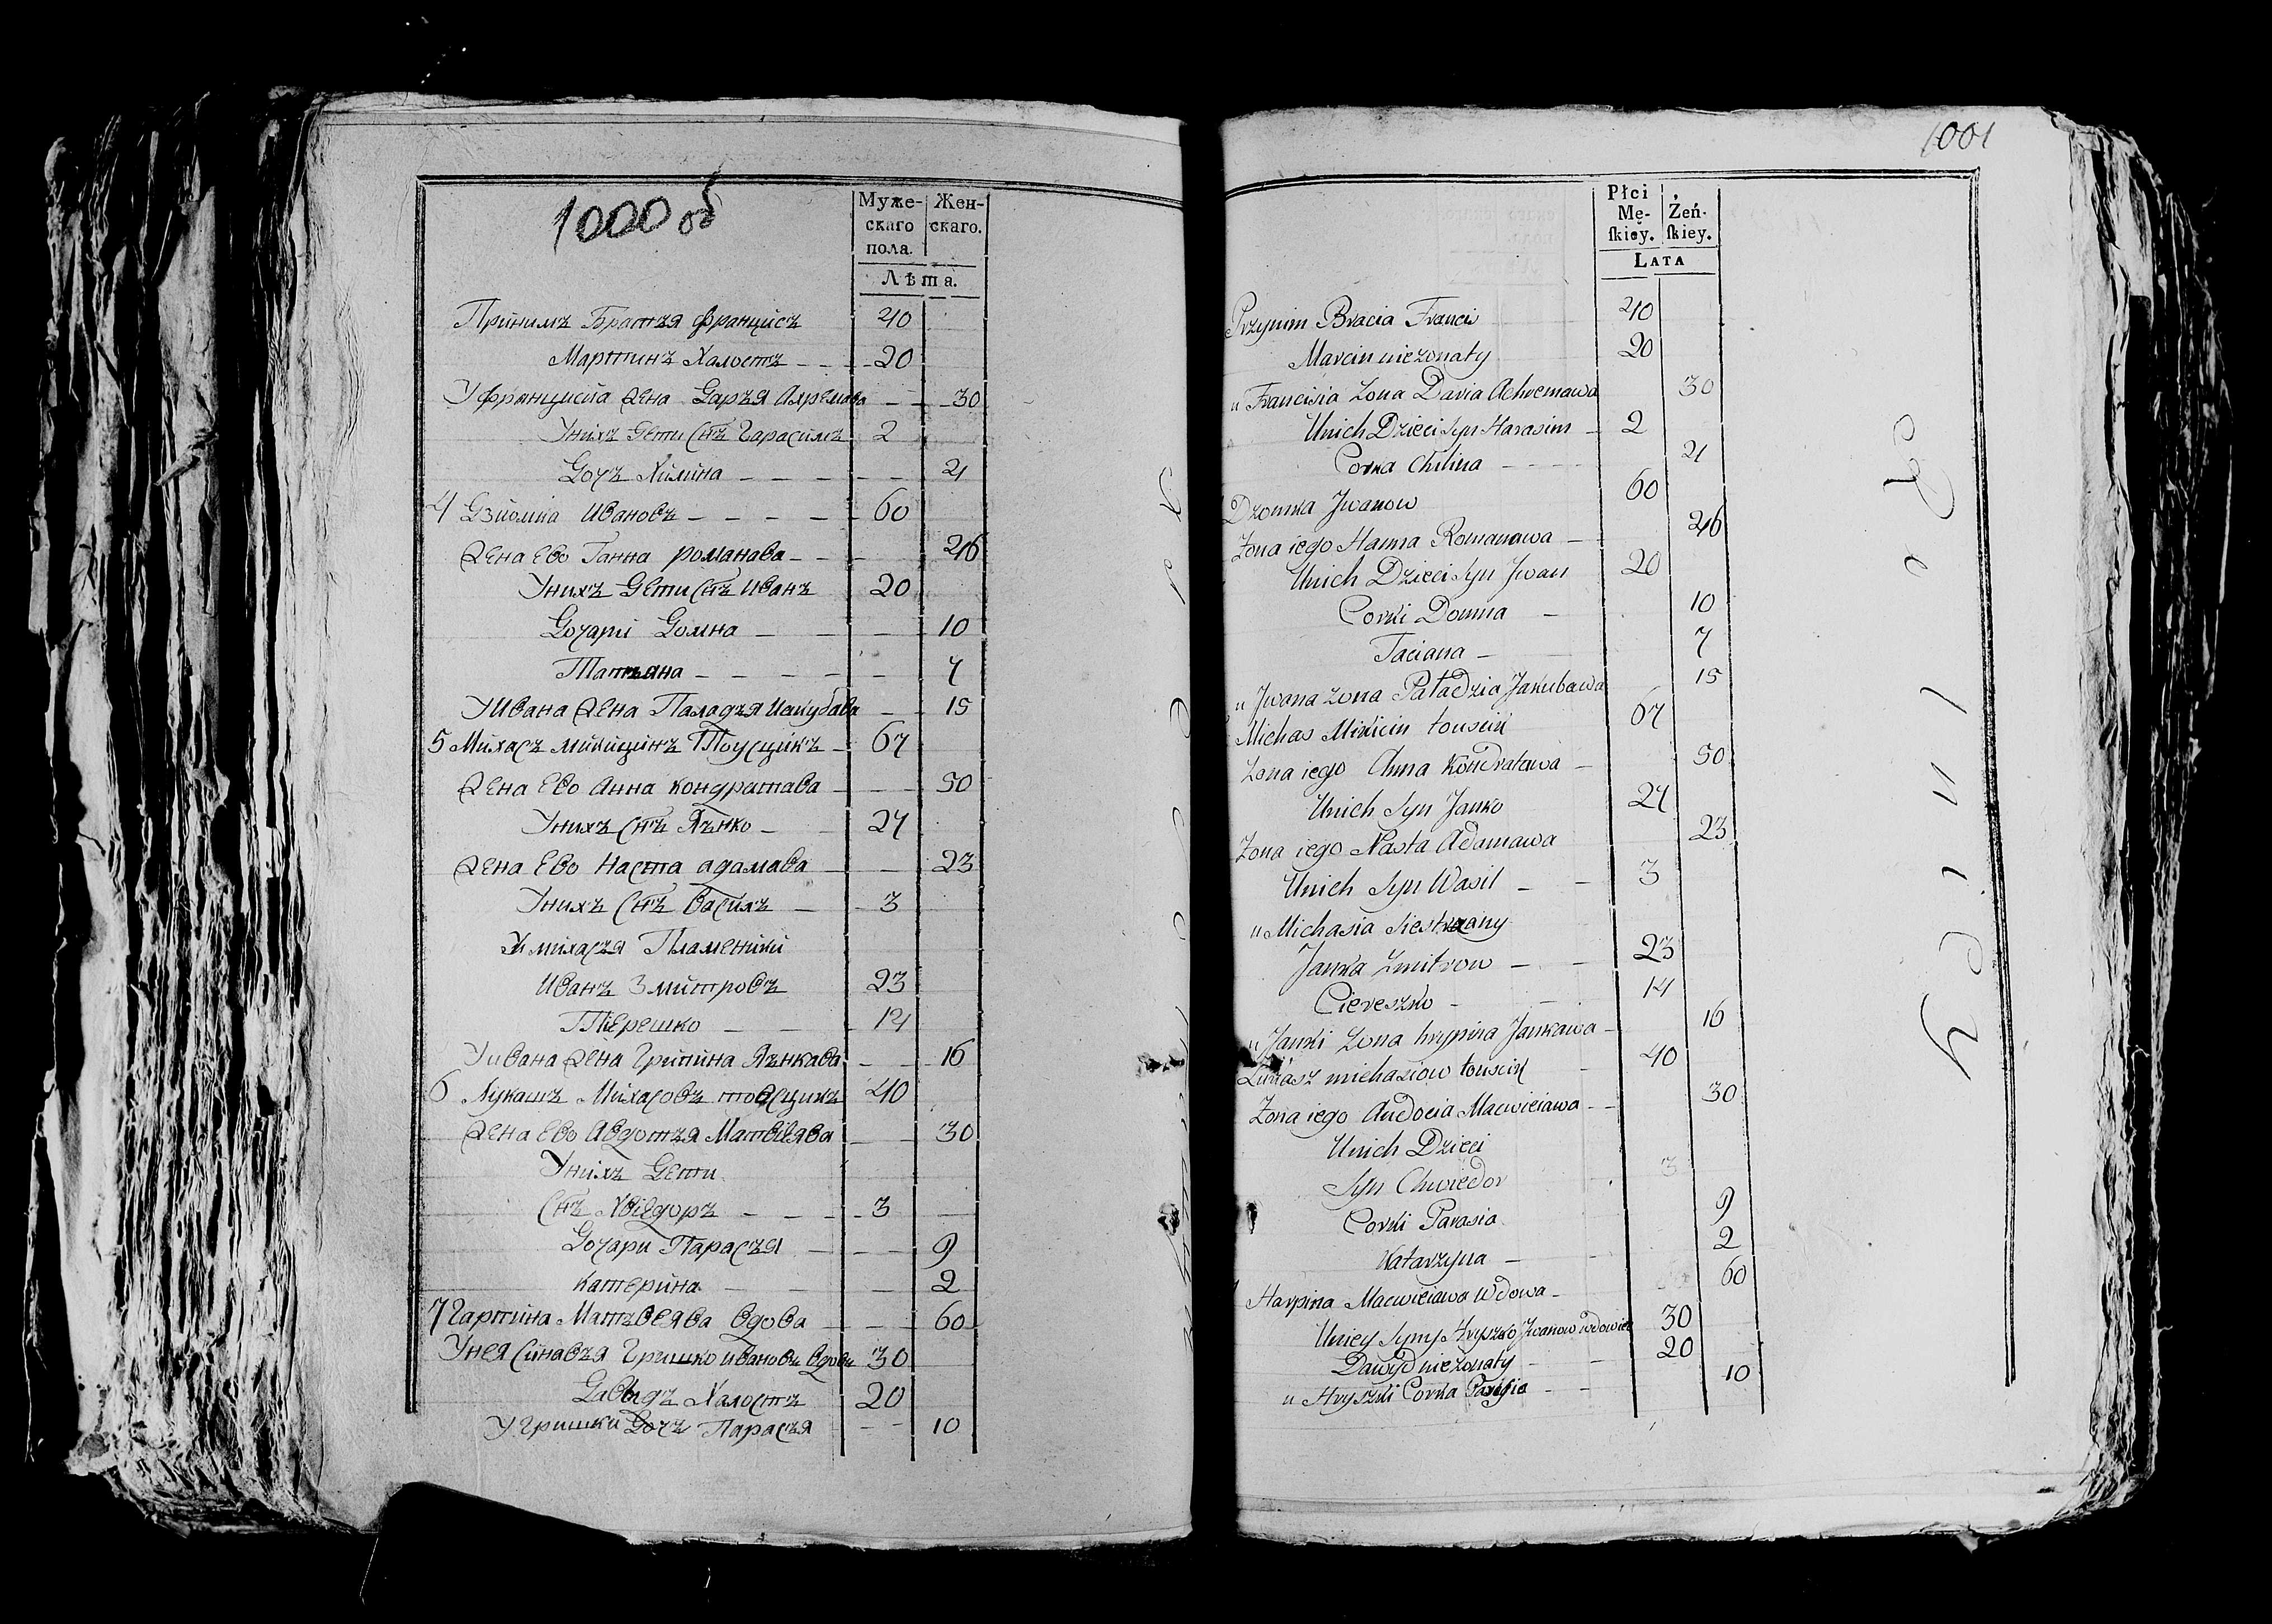 1000 об
Муже-
скаго
пола.
Жен-
скаго.
Лѣта.
Принимъ Братъя Францисъ 40
Мартинъ Халостъ - - - 20
У Францисиа Жена Даръя Ахремава - - 30
Унихъ Дети Снъ Гарасимъ 2
Дочъ Химина - - - - - 4
4 Дзиомка Ивановъ - - - - - 60
Жена Ево Ганна романава - - - 46
Унихъ Дети Снъ Иванъ 20
Дочари Домна - - - 10
Татъяна - - - - - - 7
У Ивана Жена Паладъя Иакубава - - 15
5 Михасъ микицинъ Тоусцикъ - 67
Жена Ево Анна кондратава - - - 50
Унихъ Снъ Янъко - - 27
Жена Ево Наста адамава - - 23
Унихъ Снъ Василъ - - 3
У михасъя Пламеники
Иванъ Змитровъ 23
Терешко - - - 14
У ивана Жена Грипина Янъкава - - 16
6 Лукашъ Михасовъ тоусцикъ 40
Жена Ево Авдотъя Матвіява - - 30
Унихъ Дети
Снъ Хвіедоръ - - - - 3
Дочари Парасъя - - - 9
катерина - - - 2
7 Гарпина Матъвеява вдова - - 60
Унея Синавъя Гришко ивановъ вдовы 30
Давыдъ Халостъ 20
У гришки Дочъ Парасъя - - 10
1001
Płci
Mę-
ſkiey.
Żeń-
ſkiey.
LATA
Przynim Bracia Francis 40
Marcin niezonaty 20
u Francisia Zona Daria Achremawa 30
Unich Dzieci Syn Harasim - 2
Corka Chilina - - - - 4
Dziomka Jwanow 60
Zona iego Hanna Romanawa - 46
Unich Dzieci Syn Jwan 20
Corki Domna - 10
Taciana - 7
u Jwana zona Paładzia Jakubawa 15
Michas Mikicin touscik 67
Zona iego Anna Kondratawa - 50
Unich Syn Janko 27
Zona iego Nasta Adamawa 23
Unich Syn Wasil - - 3
u Michasia Siestrzany
Janka Zmitrow - - 23
Ciereszko - - 14
u Janki Zona hrypina Jankawa - 16
Lukasz michasiow touscik - 40
Zona iego Audocia Macwieiawa - - 30
Unich Dzieci
Syn Chwiedor 3
Corki Parasia 9
Katarzyna - - 2
Harpina Macwieiawa Wdowa - 60
Uniey Syny Hryszko Jwanow wdowiec 30
Dawyd niezonaty - - 20
u Hryszki Corka Parasia - - 10